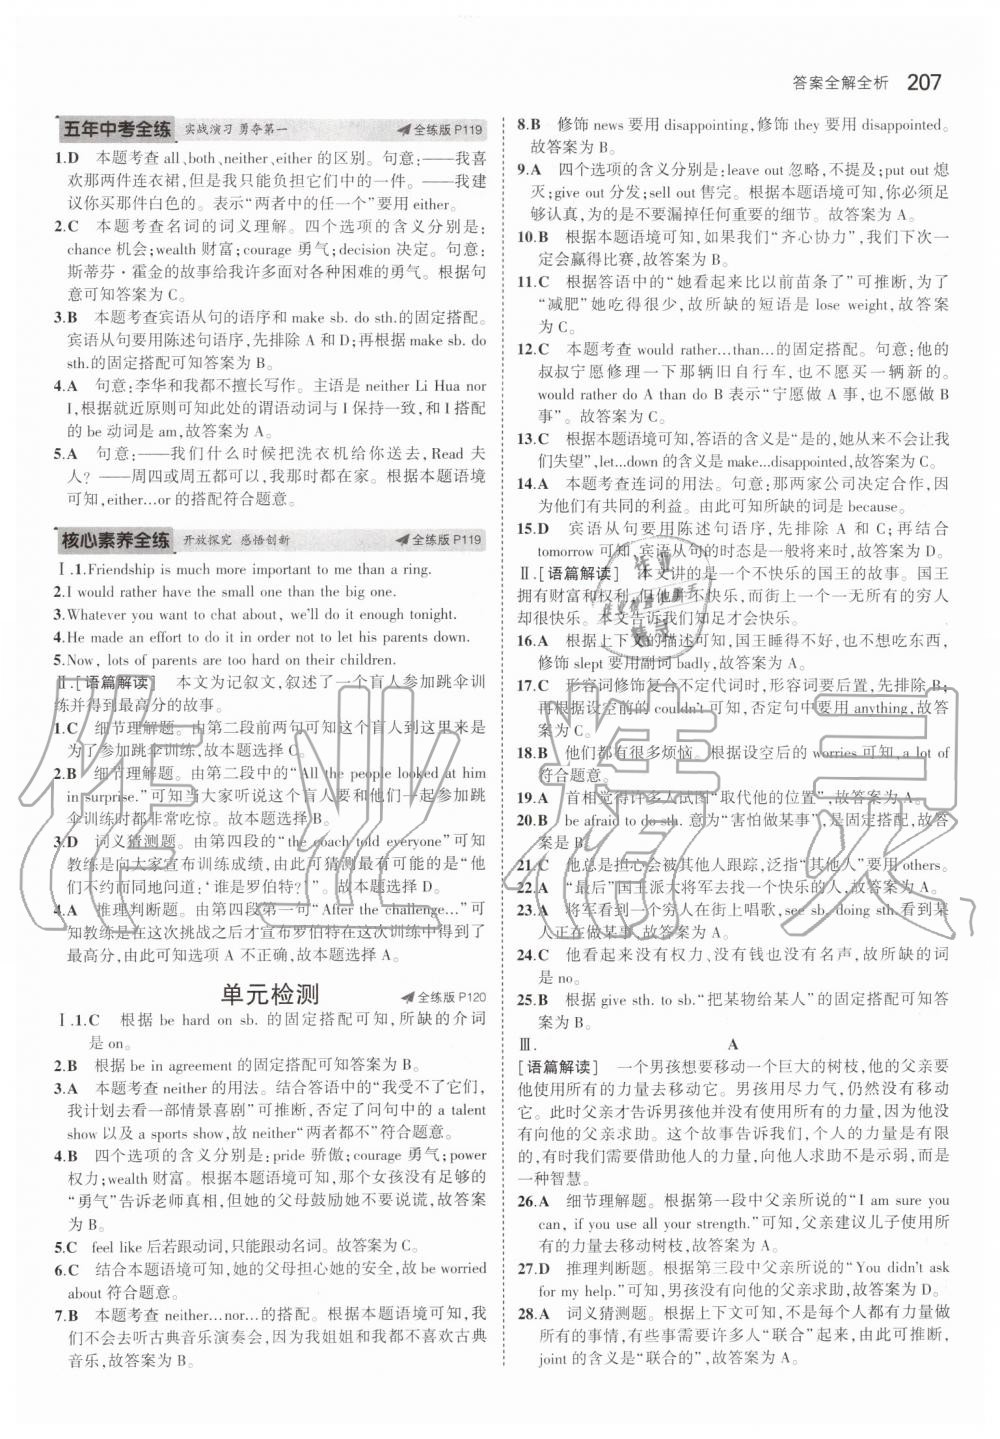 答案全解全析 207
五年中考全练 实战演习 勇夺第一 全练版 P119
1.D 本题考查 all、both、neither、either 的区别。句意:——我喜
欢那两件连衣裙,但是我只能负担它们中的一件。——我建
议你买那件白色的。表示“两者中的任一个”要用 either。
2.C 本题考查名词的词义理解。四个选项的含义分别是:
chance 机会;wealth 财富;courage 勇气;decision 决定。句意:
斯蒂芬·霍金的故事给我许多面对各种困难的勇气。根据句
意可知答案为 C。
3.B 本题考查宾语从句的语序和 make sb. do sth.的固定搭配。
宾语从句要用陈述句语序,先排除 A 和 D;再根据 make sb. do
sth.的固定搭配可知答案为 B。
4.A 句意:李华和我都不擅长写作。主语是 neither Li Hua nor
I,根据就近原则可知此处的谓语动词与 I 保持一致,和 I 搭配
的 be 动词是 am,故答案为 A。
5.A 句意:——我们什么时候把洗衣机给你送去,Read 夫
人? ——周四或周五都可以,我那时都在家。根据本题语境
可知,either…or 的搭配符合题意。
核心素养全练 开放探究 感悟创新 全练版 P119
Ⅰ.1.Friendship is much more important to me than a ring.
2.I would rather have the small one than the big one.
3.Whatever you want to chat about, we'll do it enough tonight.
4.He made an effort to do it in order not to let his parents down.
5.Now, lots of parents are too hard on their children.
Ⅱ.[语篇解读] 本文为记叙文,叙述了一个盲人参加跳伞训
练并得到最高分的故事。
1.C 细节理解题。由第二段前两句可知这个盲人到这里来是
为了参加跳伞训练,故本题选择 C。
2.B 细节理解题。由第二段中的“All the people looked at him
in surprise.”可知当大家听说这个盲人要和他们一起参加跳
伞训练时都非常吃惊。故本题选择 B。
3.D 词义猜测题。由第四段的“the coach told everyone”可知
教练是向大家宣布训练成绩,由此可猜测最有可能的是“他
们不约而同地问道:‘谁是罗伯特?’”。故本题选择 D。
4.A 推理判断题。由第四段第一句“After the challenge…”可
知教练是在这次挑战之后才宣布罗伯特在这次训练中得到了
最高分,由此可知选项 A 不正确,故本题选择 A。
单元检测 全练版 P120
Ⅰ.1.C 根据 be hard on sb. 的固定搭配可知,所缺的介词
是 on。
2.B 根据 be in agreement 的固定搭配可知答案为 B。
3.A 本题考查 neither 的用法。结合答语中的“我受不了它们,
我计划去看一部情景喜剧”可推断,否定了问句中的 a talent
show 以及 a sports show,故 neither“两者都不”符合题意。
4.B 四个选项的含义分别是:pride 骄傲;courage 勇气;power
权力;wealth 财富。根据本题语境可知,那个女孩没有足够的
“勇气”告诉老师真相,但她的父母鼓励她不要说谎,故答案
为 B。
5.C feel like 后若跟动词,只能跟动名词。故答案为 C。
6.C 结合本题语境可知,她的父母担心她的安全,故 be worried
about 符合题意。
7.B 本题考查 neither…nor…的搭配。根据本题语境可知,我
们不会去听古典音乐演奏会,因为我姐姐和我都不喜欢古典
音乐,故答案为 B。
8.B 修饰 news 要用 disappointing,修饰 they 要用 disappointed。
故答案为 B。
9.A 四个选项的含义分别是:leave out 忽略,不提及;put out 熄
灭;give out 分发;sell out 售完。根据本题语境可知,你必须足
够认真,为的是不要漏掉任何重要的细节。故答案为 A。
10.B 根据本题语境可知,如果我们“齐心协力”,我们下次一
定会赢得比赛,故答案为 B。
11.C 根据答语中的“她看起来比以前苗条了”可推断,为了
“减肥”她吃得很少,故所缺的短语是 lose weight,故答案
为 C。
12.C 本题考查 would rather…than…的固定搭配。句意:他的
叔叔宁愿修理一下那辆旧自行车,也不愿买一辆新的。
would rather do A than do B 表示“宁愿做 A 事,也不愿做 B
事”。故答案为 C。
13.C 根据本题语境可知,答语的含义是“是的,她从来不会让我
们失望”,let…down 的含义是 make…disappointed,故答案为 C。
14.A 本题考查连词的用法。句意:那两家公司决定合作,因
为他们有共同的利益。由此可知所缺的词是 because。
15.D 宾语从句要用陈述句语序,先排除 A 和 C;再结合
tomorrow 可知,宾语从句的时态是一般将来时,故答案为 D。
Ⅱ.[语篇解读] 本文讲的是一个不快乐的国王的故事。国王
拥有财富和权利,但他并不快乐,而街上一个一无所有的穷人
却很快乐。本文告诉我们知足才会快乐。
16.A 根据上下文的描述可知,国王睡得不好,也不想吃东西,
修饰 slept 要用副词 badly,故答案为 A。
17.C 形容词修饰复合不定代词时,形容词要后置,先排除 B;
再根据设空前的 couldn't 可知,否定句中要用 anything,故答
案为 C。
18.B 他们都有很多烦恼。根据设空后的 worries 可知,a lot of
符合题意。
19.A 首相觉得许多人试图“取代他的位置”,故答案为 A。
20.B be afraid to do sth. 意为“害怕做某事”,是固定搭配,故答
案是 B。
21.C 他总是担心会被其他人跟踪,泛指“其他人”要用 others。
22.A “最后”国王派大将军去找一个快乐的人,故答案为 A。
23.A 将军看到一个穷人在街上唱歌,see sb. doing sth.看到某
人正在做某事,故答案为 A。
24.C 他看起来没有权力、没有钱也没有名声,故所缺的词
是 no。
25.B 根据 give sth. to sb.“把某物给某人”的固定搭配可知答
案为 B。
Ⅲ. A
[语篇解读] 一个男孩想要移动一个巨大的树枝,他的父亲要
他使用所有的力量去移动它。男孩用尽力气,仍然没有移动
它。此时父亲才告诉男孩他并没有使用所有的力量,因为他没
有向他的父亲求助。这个故事告诉我们,个人的力量是有限
的,有时我们需要借助他人的力量,向他人求助不是示弱,而是
一种智慧。
26.A 细节理解题。根据第一段中父亲所说的“I am sure you
can, if you use all your strength.”可知,父亲建议儿子使用所
有的力量去移动树枝,故答案为 A。
27.D 推理判断题。根据第三段中父亲所说的“You didn't ask
for my help.”可知,男孩没有向他的父亲求助,故答案为 D。
28.A 词义猜测题。根据上下文可知,不是每个人都有力量做
所有的事情,有些事需要许多人“联合”起来,由此可推断,
joint 的含义是“联合的”,故答案为 A。
作业精灵